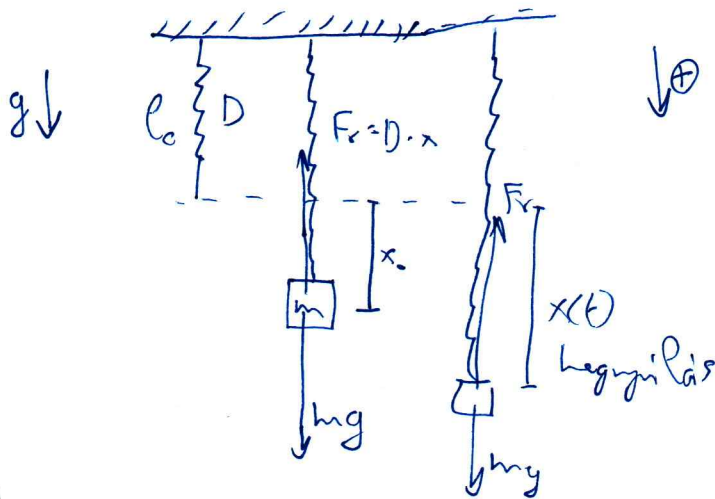 g
l₀
D
F_r = D · x
⊕
F_r
x₀
m
x(t)
megnyúlás
mg
mg